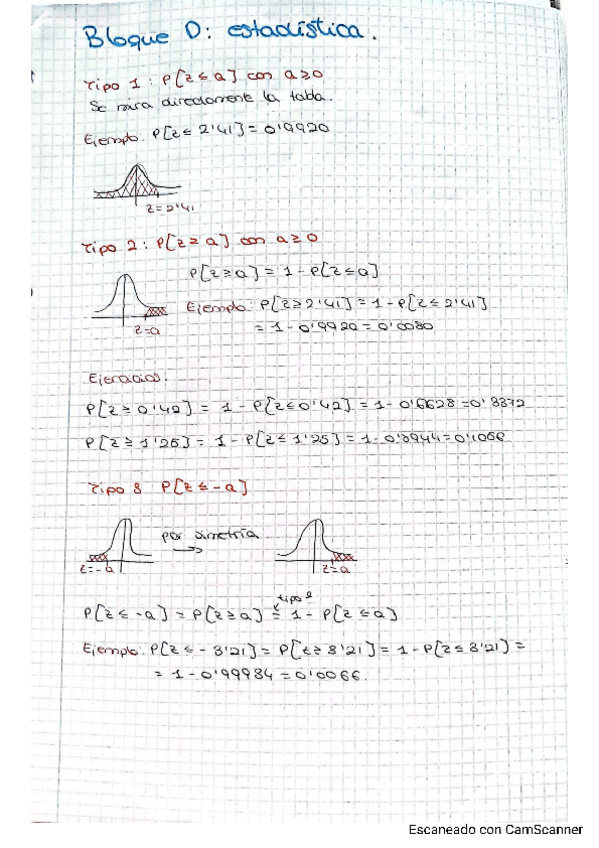 Bloque D: estadística.
Tipo 1: P[z ≤ a] con a≥0
Se mira directamente la tabla.
Ejemplo: P[z ≤ 2'41] = 0'9920
z=2'41
Tipo 2: P[z ≥ a] con a≥0
P[z ≥ a] = 1 - P[z ≤ a]
Ejemplo: P[z ≥ 2'41] = 1 - P[z ≤ 2'41]
= 1 - 0'9920 = 0'0080
z=a
Ejercicios.
P[z ≥ 0'42] = 1 - P[z ≤ 0'42] = 1 - 0'6628 = 0'3372
P[z ≥ 1'25] = 1 - P[z ≤ 1'25] = 1 - 0'8944 = 0'1056
Tipo 3 P[z ≤ -a]
por simetría
z=-a z=a
tipo 2
P[z ≤ -a] = P[z ≥ a] = 1 - P[z ≤ a]
Ejemplo: P[z ≤ -3'21] = P[z ≥ 3'21] = 1 - P[z ≤ 3'21] =
= 1 - 0'99934 = 0'0066.
Escaneado con CamScanner